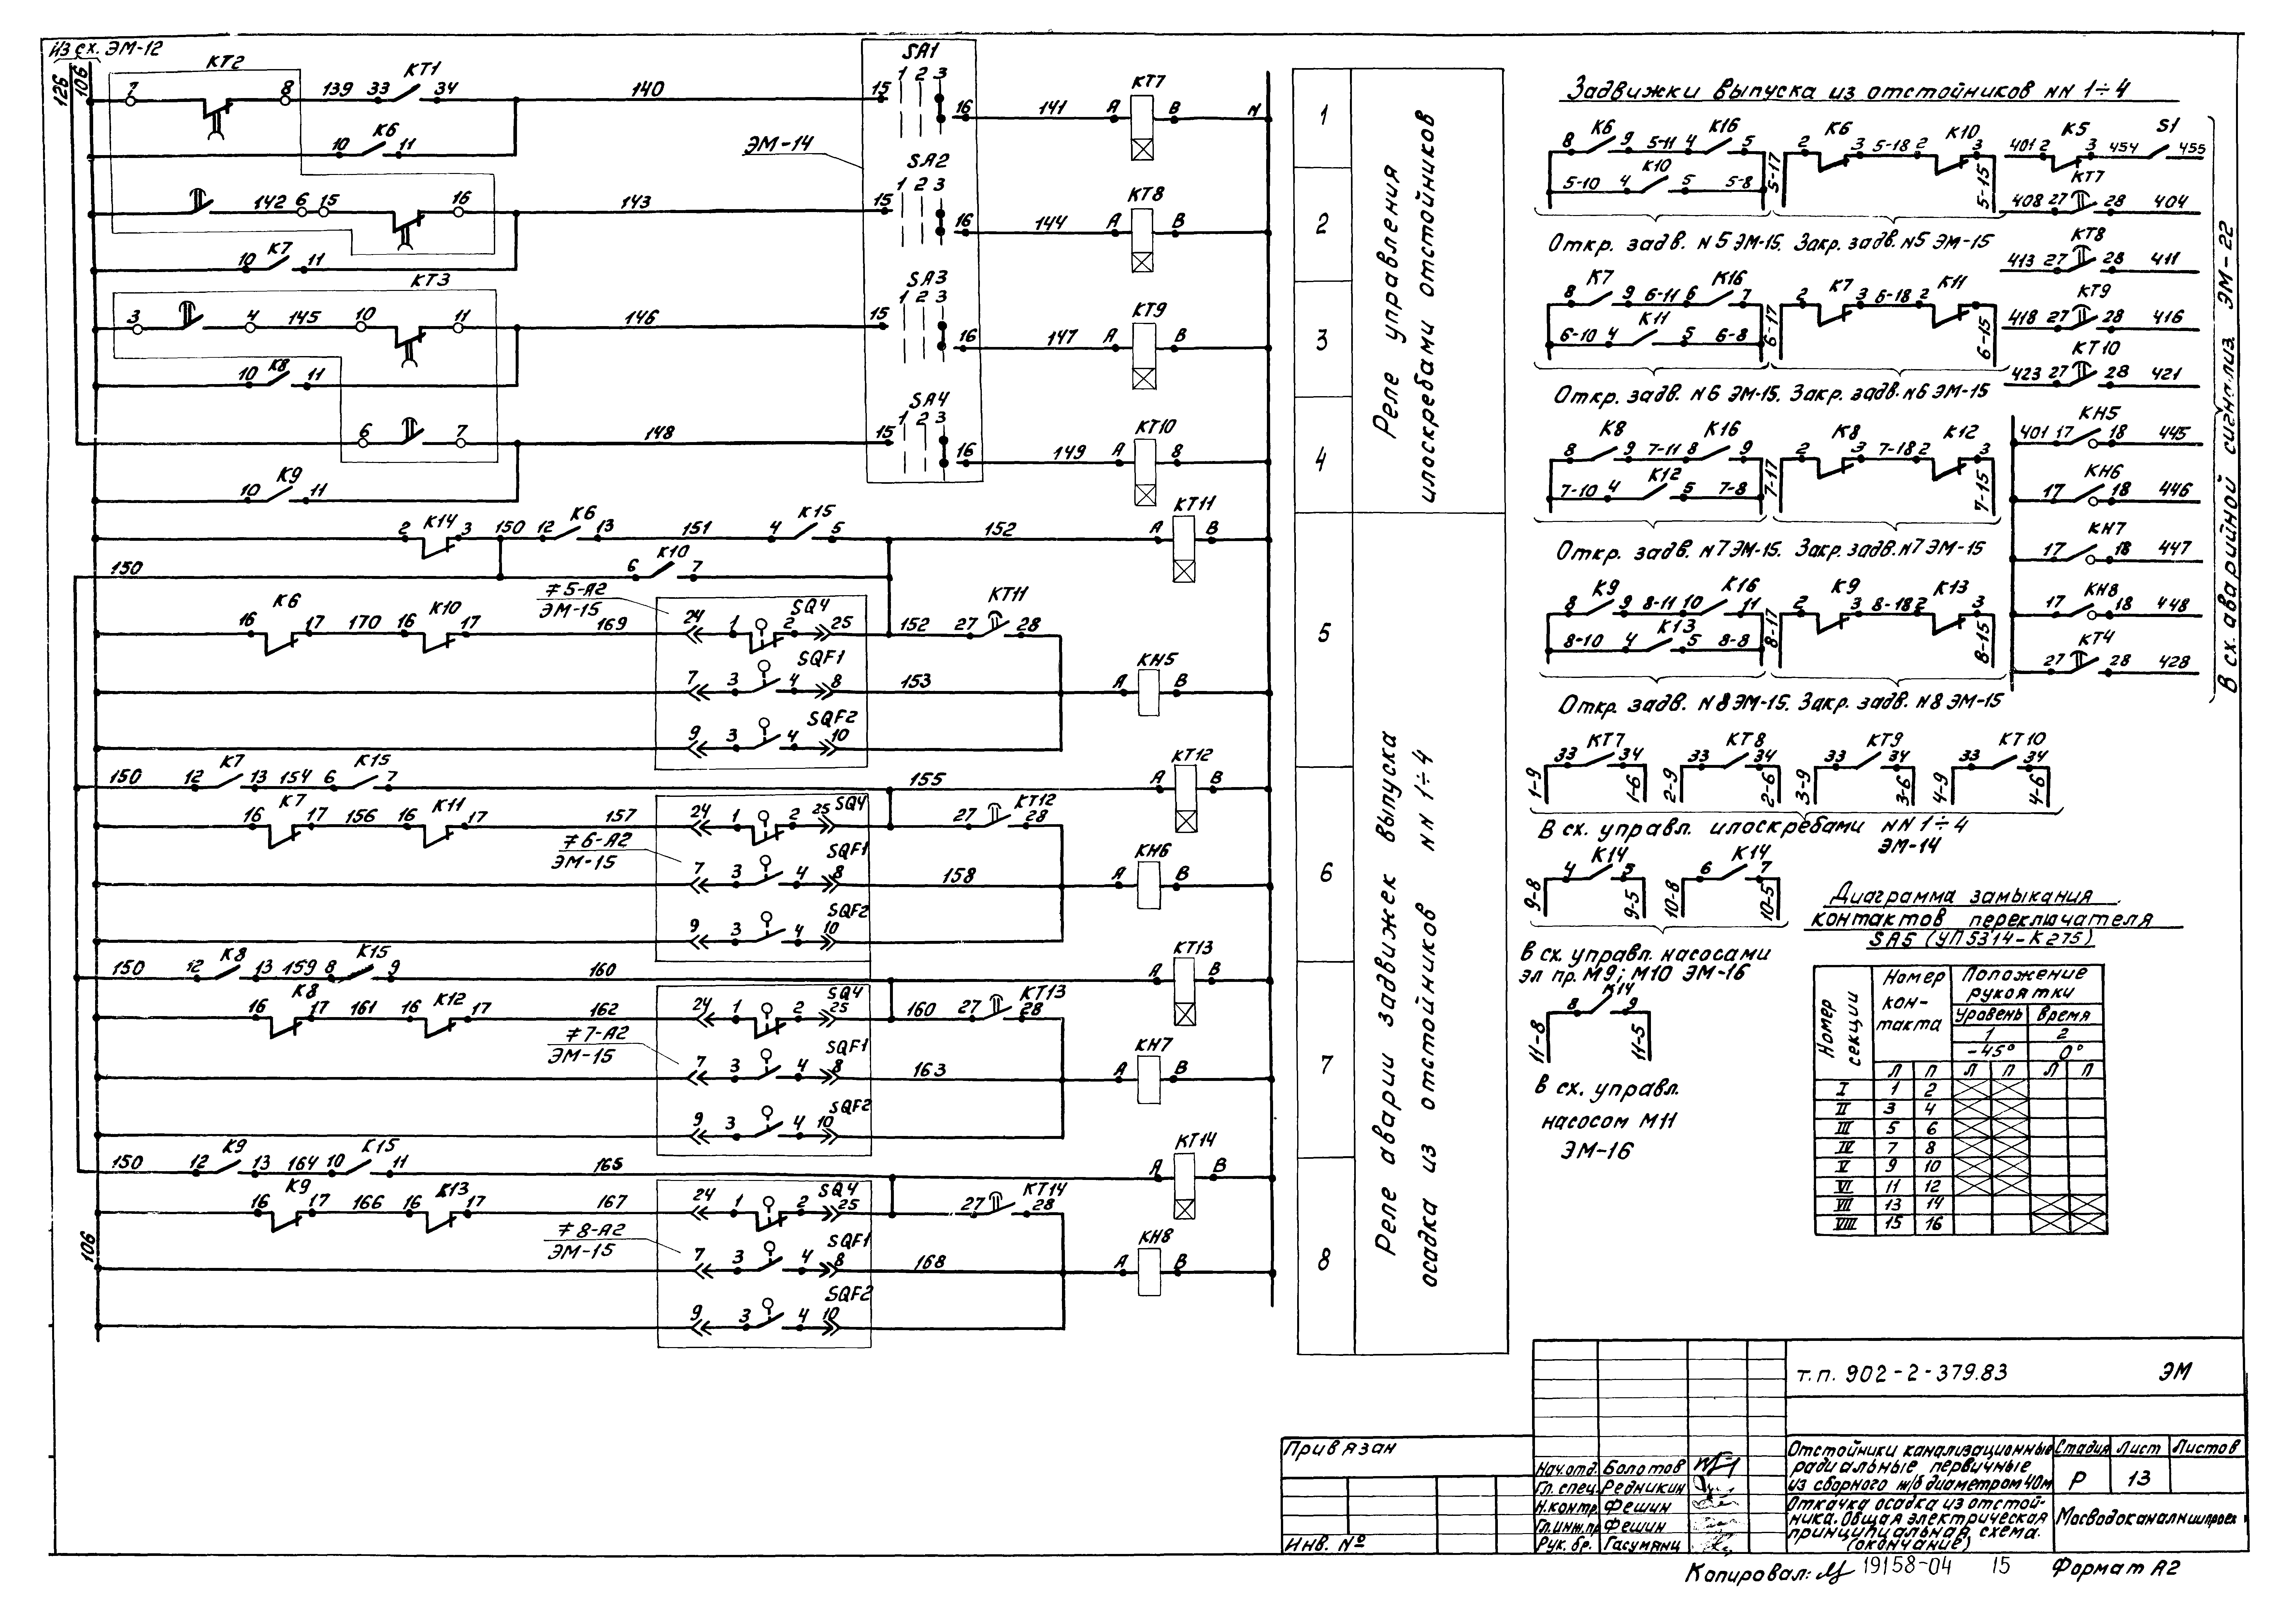 Из сх. ЭМ-12
126
106
КТ2
7
8
139
33
КТ1
34
140
15
SA1
1 2 3
16
141
А
КТ7
В
N
10
К6
11
ЭМ-14
142
6
15
16
143
15
SA2
1 2 3
16
144
А
КТ8
В
10
К7
11
КТ3
3
4
145
10
11
146
15
SA3
1 2 3
16
147
А
КТ9
В
10
К8
11
6
7
148
15
SA4
1 2 3
16
149
А
КТ10
8
10
К9
11
2
К14
3
150
12
К6
13
151
4
К15
5
152
А
КТ11
В
150
6
К10
7
16
К6
17
170
16
К10
17
169
≠5-А2
ЭМ-15
24
1
SQ4
2
25
152
27
КТ11
28
7
3
SQF1
4
8
153
А
КН5
В
9
3
SQF2
4
10
150
12
К7
13
154
6
К15
7
155
А
КТ12
В
16
К7
17
156
16
К11
17
157
≠6-А2
ЭМ-15
24
1
2
25
SQ4
27
КТ12
28
7
3
4
SQF1
8
158
А
КН6
В
9
3
4
SQF2
10
150
12
К8
13
159
8
К15
9
160
А
КТ13
В
16
К8
17
161
16
К12
17
162
≠7-А2
ЭМ-15
24
1
2
SQ4
25
160
27
КТ13
28
7
3
4
SQF1
8
163
А
КН7
В
9
3
4
SQF2
10
150
12
К9
13
164
10
К15
11
165
А
КТ14
В
16
К9
17
166
16
К13
17
167
≠8-А2
ЭМ-15
24
1
2
SQ4
25
27
КТ14
28
7
3
4
SQF1
8
168
А
КН8
В
9
3
4
SQF2
10
106
1
2
3
4
5
6
7
8
Реле управления
илоскребами отстойников
Реле аварии задвижек выпуска
осадка из отстойников NN 1÷4
Задвижки выпуска из отстойников NN 1÷4
8 К6 9 5-11 4 К16 5
5-10 4 К10 5 5-8
5-17
2 К6 3 5-18 2 К10 3
5-15
Откр. задв. N5 ЭМ-15. Закр. задв. N5 ЭМ-15
8 К7 9 6-11 6 К16 7
6-10 4 К11 5 6-8
6-17
2 К7 3 6-18 2 К11
6-15
Откр. задв. N6 ЭМ-15. Закр. задв. N6 ЭМ-15
8 К8 9 7-11 8 К16 9
7-10 4 К12 5 7-8
7-17
2 К8 3 7-18 2 К12 3
7-15
Откр. задв. N7 ЭМ-15. Закр. задв. N7 ЭМ-15
8 К9 9 8-11 10 К16 11
8-10 4 К13 5 8-8
8-17
2 К9 3 8-18 2 К13 3
8-15
Откр. задв. N8 ЭМ-15. Закр. задв. N8 ЭМ-15
401 2 К5 3 454 S1 455
КТ7
408 27 28 404
КТ8
413 27 28 411
КТ9
418 27 28 416
КТ10
423 27 28 421
КН5
401 17 18 445
КН6
17 18 446
КН7
17 18 447
КН8
17 18 448
КТ4
27 28 428
В сх. аварийной сигнализ. ЭМ-22
1-9 33 КТ7 34 1-6
2-9 33 КТ8 34 2-6
3-9 33 КТ9 34 3-6
4-9 33 КТ10 34 4-6
В сх. управл. илоскребами NN 1÷4
ЭМ-14
9-8 4 К14 5 9-5
10-8 6 К14 7 10-5
В сх. управл. насосами
эл пр. М9; М10 ЭМ-16
11-8 8 К14 9 11-5
В сх. управл.
насосом М11
ЭМ-16
Диаграмма замыкания
контактов переключателя
SA5 (УП5314-К275)
Номер секции
Номер контакта
Положение рукоятки
Уровень Время
1 2
-45° 0°
Л П Л П Л П
I 1 2
II 3 4
III 5 6
IV 7 8
V 9 10
VI 11 12
VII 13 14
VIII 15 16
т.п. 902-2-379.83 ЭМ
Привязан
Инв. №
Нач.отд. Болотов
Гл. спец. Редникин
Н.контр. Фешин
Гл.инж.пр Фешин
Рук. бр. Гасумянц
Отстойники канализационные
радиальные первичные
из сборного ж/б диаметром 40м
Стадия Лист Листов
Р 13
Откачка осадка из отстой-
ника. Общая электрическая
принципиальная схема.
(окончание)
МосводоканалНИИпроект
Копировал:
19158-04 15
Формат А2